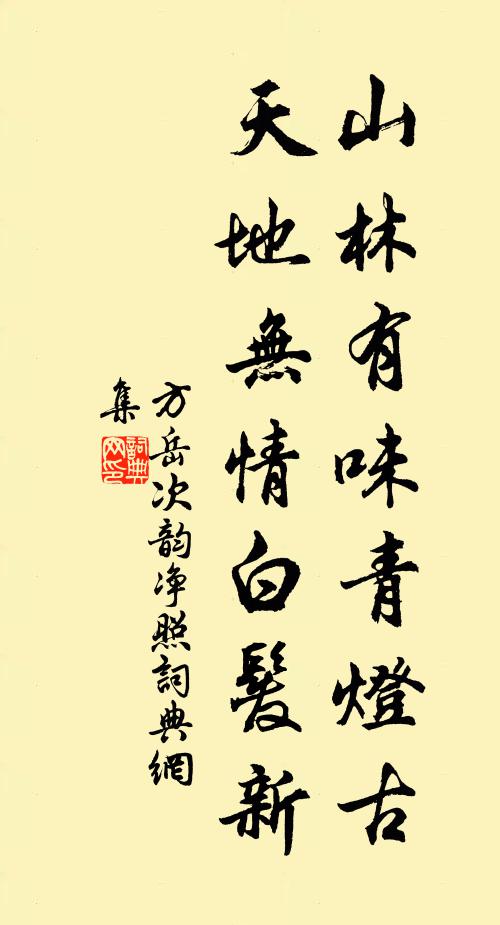 山林有味青燈古
天地無情白髮新
方岳次韵净照詞典網
集
詞典網印